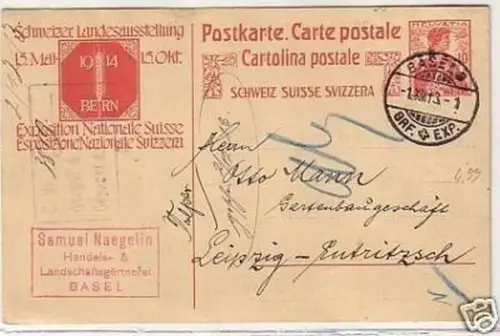 Schweizer Landesausstellung
15. Mai 15. Okt.
1914
BERN
Exposition Nationale Suisse
Esposizione Nazionale Svizzera
Postkarte. Carte postale
Cartolina postale
SCHWEIZ SUISSE SVIZZERA
HELVETIA
BASEL
BRF. EXP.
Herrn
Otto Mann
Gartenbaugeschäft
Leipzig-Eutritzsch
Samuel Naegelin
Handels- &
Landschaftsgärtnerei
BASEL